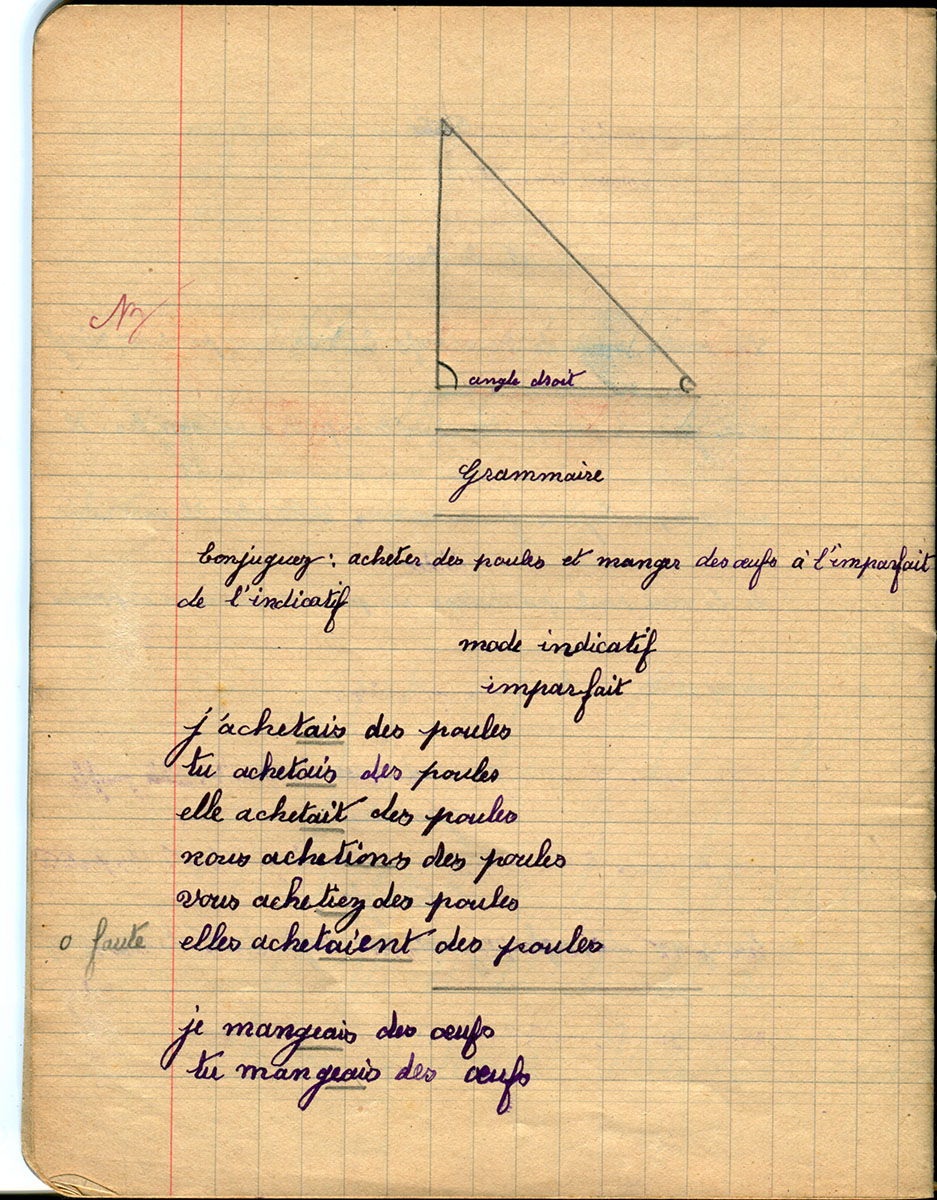 angle droit
Grammaire
Conjuguez : acheter des poules et manger des œufs à l'imparfait
de l'indicatif
mode indicatif
imparfait
j'achetais des poules
tu achetais des poules
elle achetait des poules
nous achetions des poules
vous achetiez des poules
0 faute elles achetaient des poules
je mangeais des œufs
tu mangeais des œufs